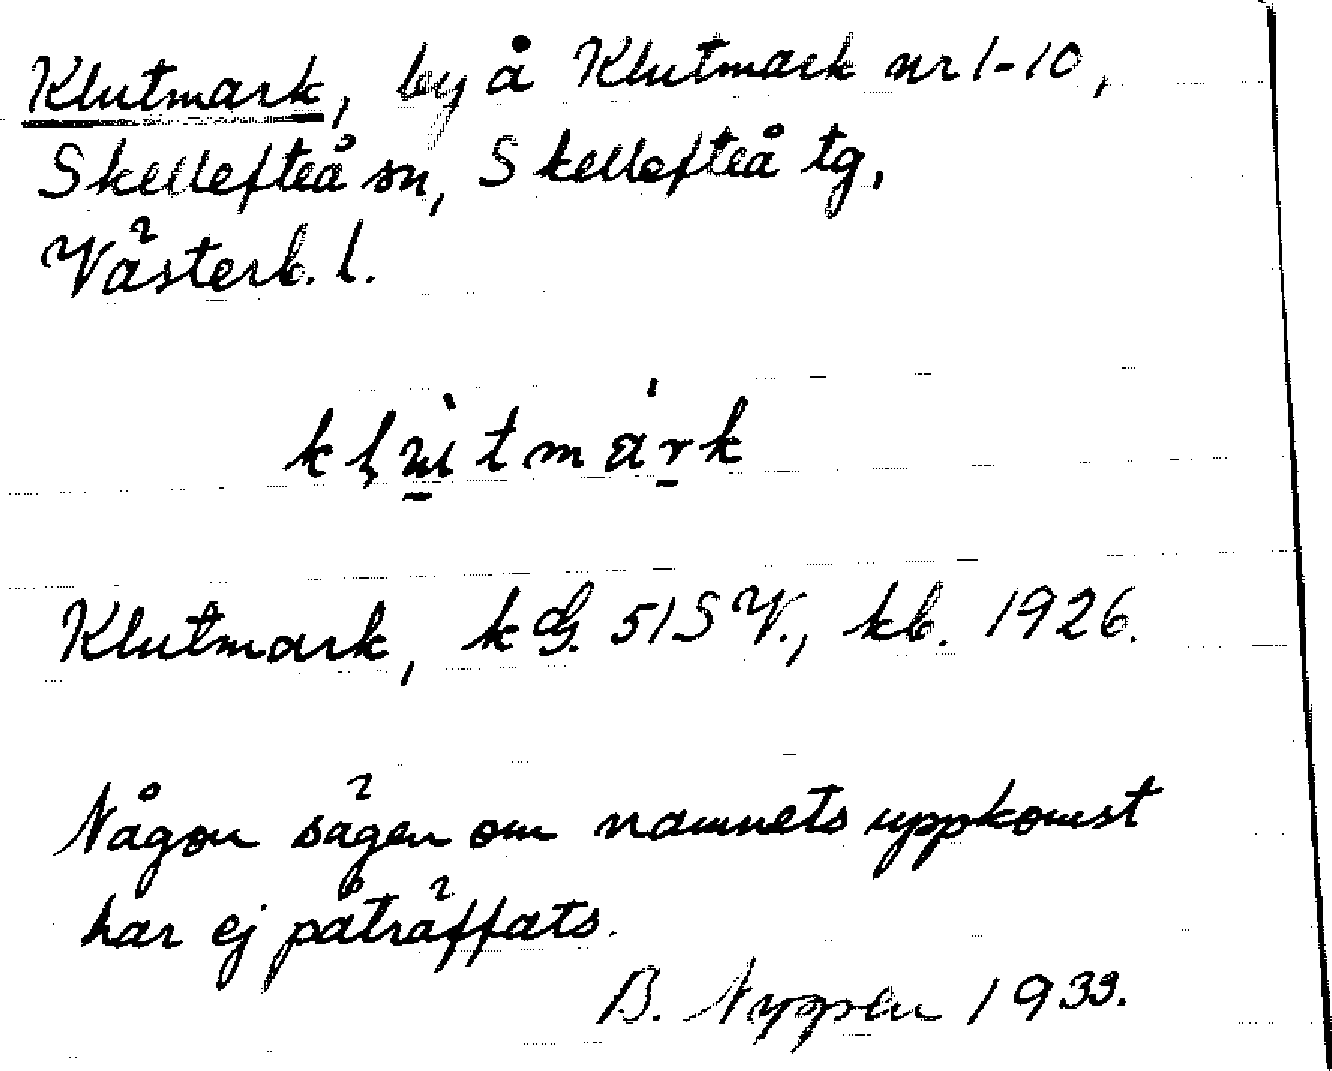 Klutmark, by å Klutmark nr 1-10,
Skellefteå sn, Skellefteå tg,
Västerb. l.
Klutmark, k G. 51 S V., kb. 1926.
Någon sägen om namnets uppkomst
har ej påträffats.
B. Nygren 1933.